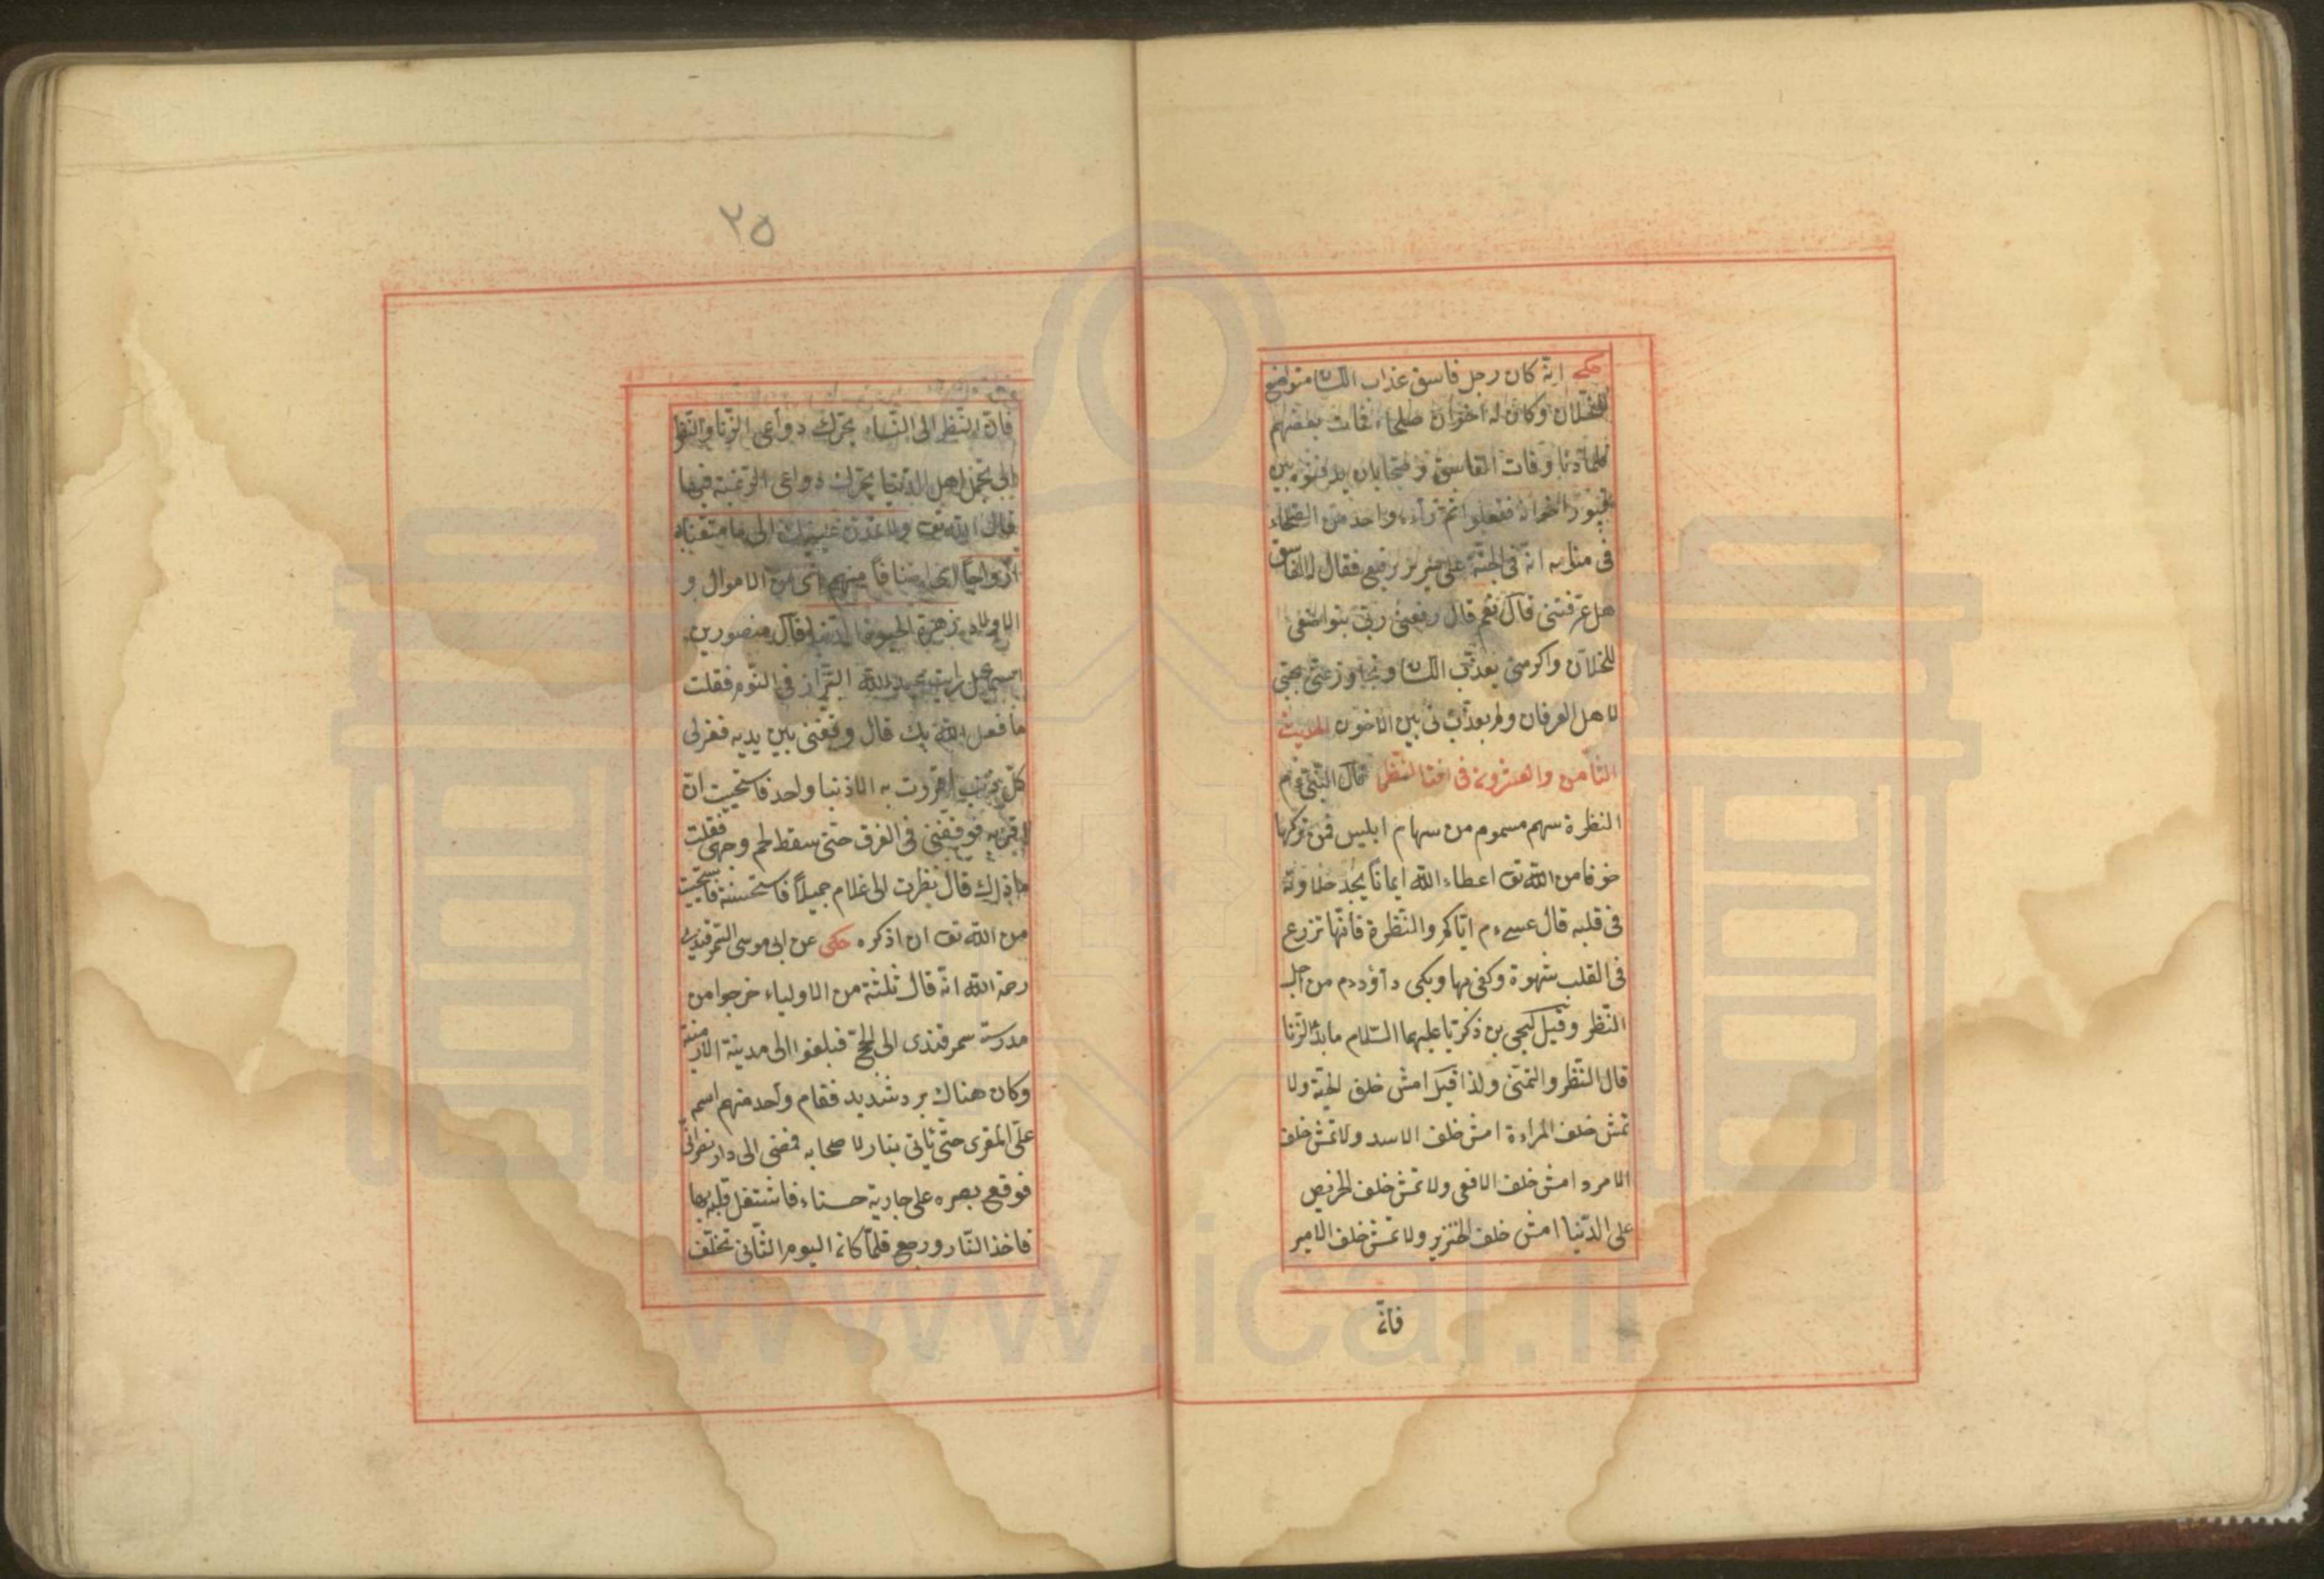 حكى انه كان رجل فاسق عذاب اللسان متواضع
للخلان وكان له اخوان صلحاء فمات بعضهم
فلما دنا وفات الفاسق بين
قبور اخوانه ففعلوا ثم رآه واحد من الصلحاء
فى منامه انه فى الجنة على سرير رفيع فقال له الفاسق
هل عرفتنى قال نعم قال رفعنى ربى بتواضعى
للخلان واكرمنى بعذب اللسان وتجاوز عنى بحبى
لاهل العرفان ولم يعذبنى بين الاخوان الحديث
الثامن والعشرون فى النظر قال النبى عم
النظرة سهم مسموم من سهام ابليس فمن تركها
خوفا من الله تع اعطاه الله ايمانا يجد حلاوته
فى قلبه قال عيسى عم اياكم والنظرة فانها تزرع
فى القلب شهوة وكفى بها وبكى داود عم من اجل
النظر وقيل ليحيى بن ذكريا عليهما السلام ما بدء الزنا
قال النظر والتمنى ولذا قيل امش خلف الحية ولا
تمش خلف المراءة امش خلف الاسد ولا تمش خلف
الامرد امش خلف الافعى ولا تمش خلف الحريص
على الدنيا امش خلف الخنزير ولا تمش خلف الامير
فانه
٢٥
فان النظر الى النساء يحرك دواعى الزنا والنظر
الى تجمل اهل الدنيا يحرك دواعى الرغبة فيها
قال الله تع ولا تمدن عينيك الى ما متعنا به
ازواجا اى اصنافا منهم اى من الاموال و
الاولاد زهرة الحيوة الدنيا قال منصور بن
اسمعيل رايت عبد الله البزاز فى النوم فقلت
ما فعل الله بك قال وقفنى بين يديه فغفر لى
كل ذنب اقررت به الا ذنبا واحد فاستحييت ان
اقر به فوقفنى فى العرق حتى سقط لحم وجهى فقلت
ما ذلك قال نظرت الى غلام جميلا فاستحسنته فاستحييت
من الله تع ان اذكره حكى عن ابى موسى السمرقندى
رحمة الله انه قال ثلثة من الاولياء خرجوا من
مدرسة سمرقندى الى الحج فبلغوا الى مدينة الارمنية
وكان هناك برد شديد فقام واحد منهم اسمه
على المقرى حتى ياتى بنار لاصحابه فمضى الى دار نصرانى
فوقع بصره على جارية حسناء فاشتغل قلبه بها
فاخذ النار ورجع فلما كان اليوم الثانى تخلف
www.ical.ir